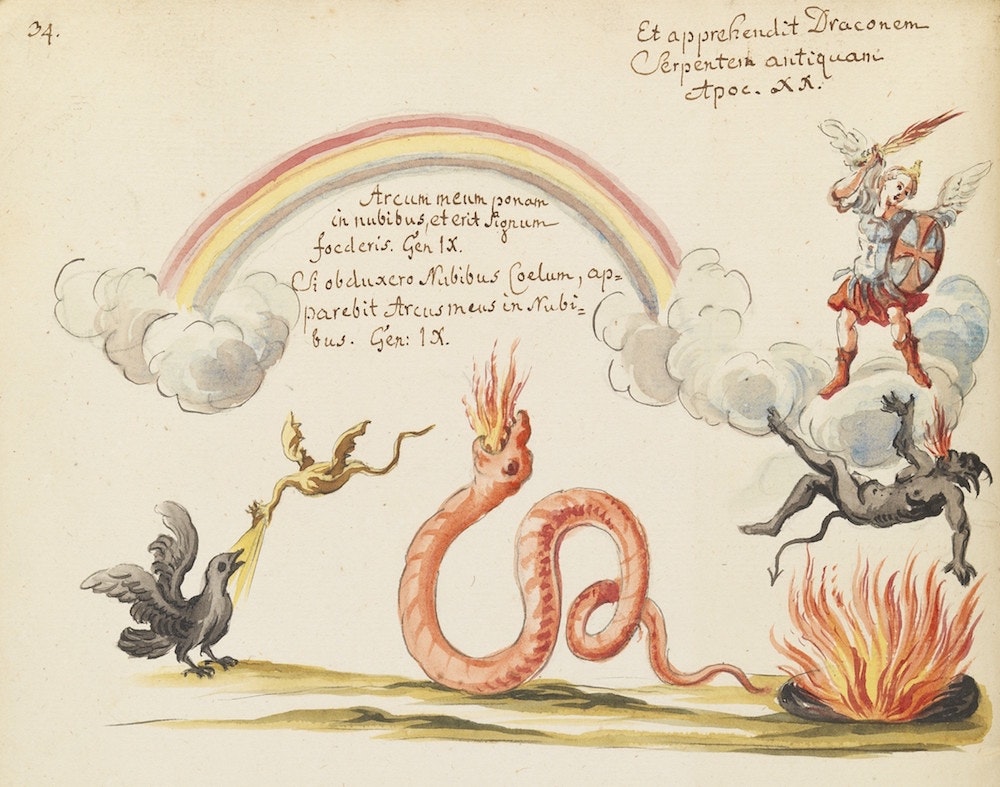 34.
Et apprehendit Draconem
Serpentem antiquam
Apoc. XX.
Arcum meum ponam
in nubibus, et erit signum
foederis. Gen IX.
Si obduxero Nubibus Coelum, ap=
parebit Arcus meus in Nubi=
bus. Gen: IX.